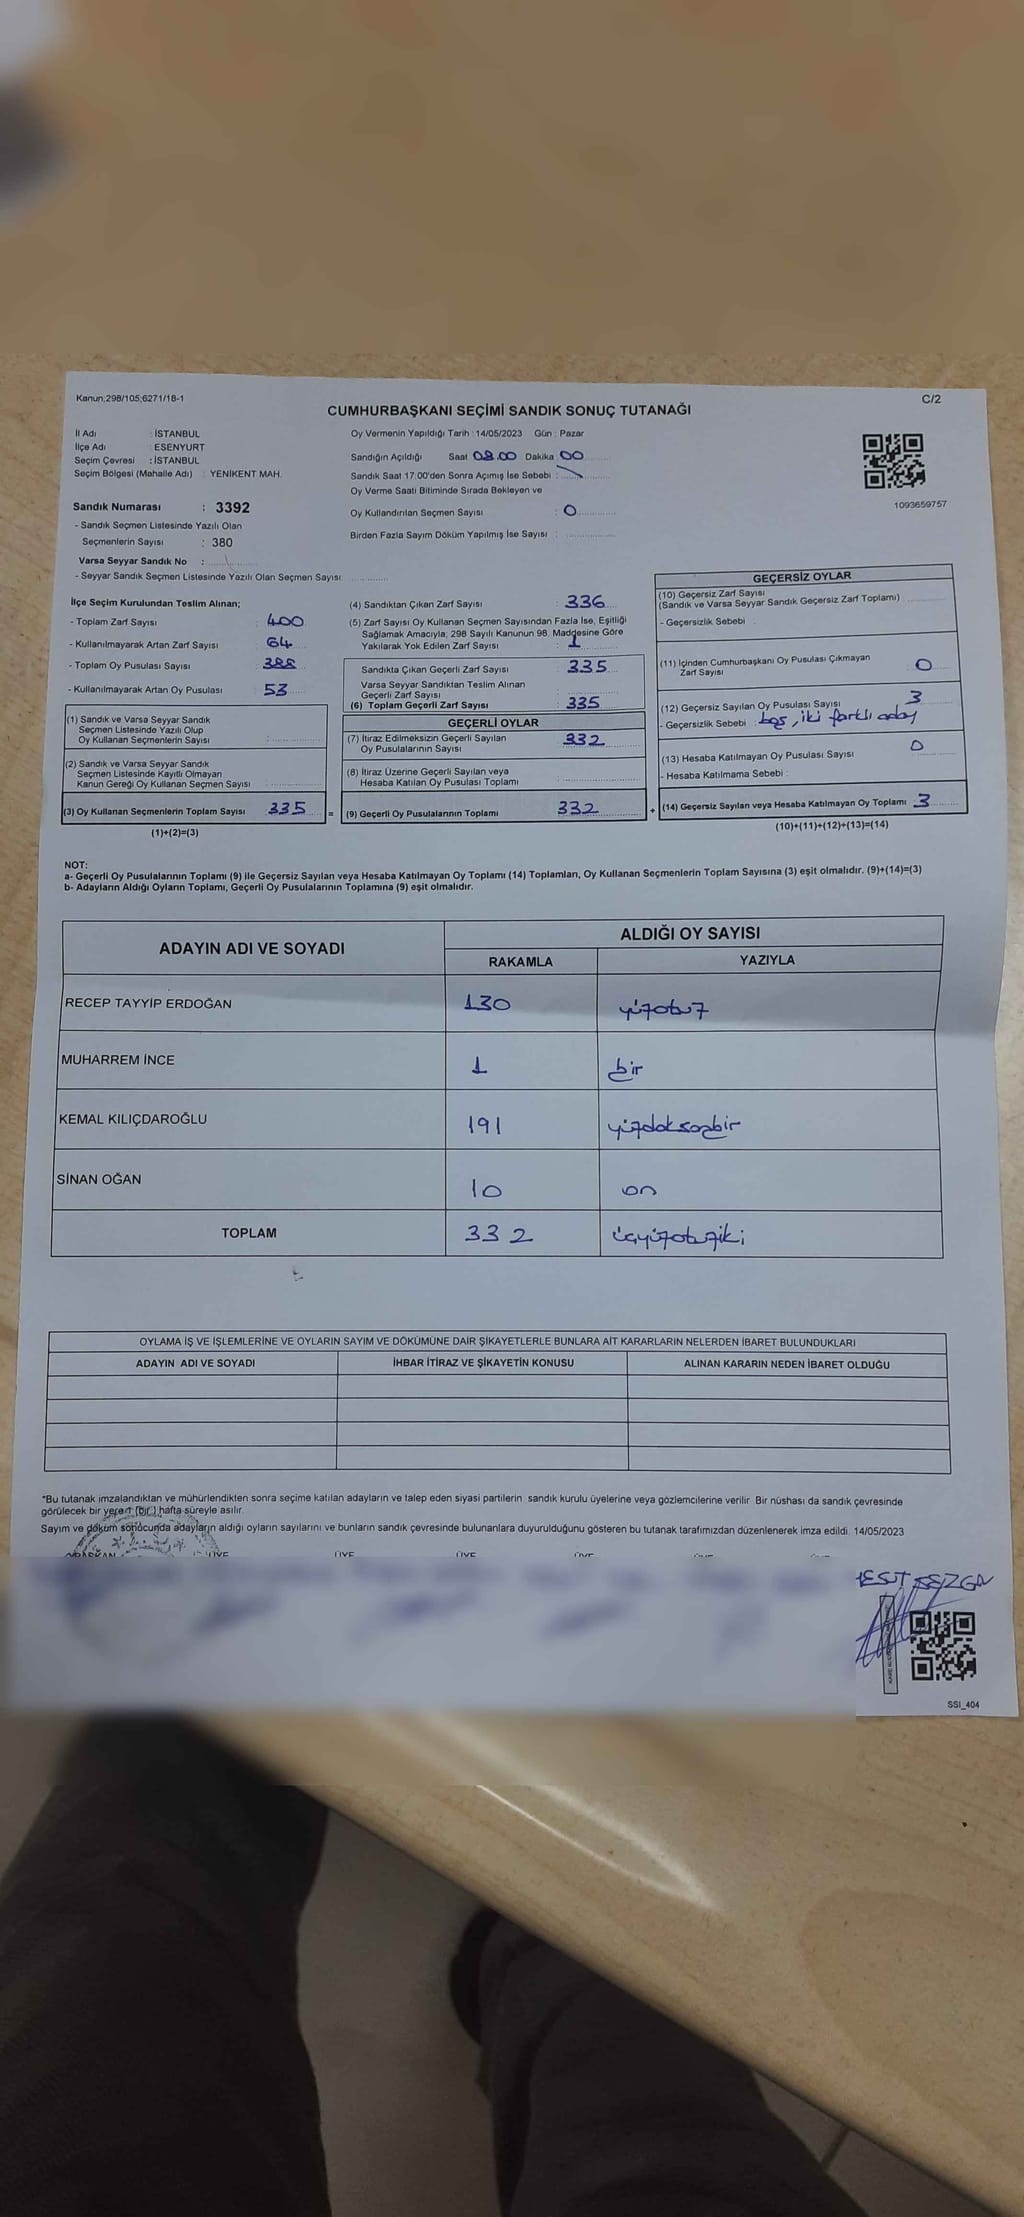 Kanun;298/105;6271/18-1
C/2
CUMHURBAŞKANI SEÇİMİ SANDIK SONUÇ TUTANAĞI
İl Adı : İSTANBUL
İlçe Adı : ESENYURT
Seçim Çevresi : İSTANBUL
Seçim Bölgesi (Mahalle Adı) : YENİKENT MAH.
Sandık Numarası : 3392
- Sandık Seçmen Listesinde Yazılı Olan
Seçmenlerin Sayısı : 380
Varsa Seyyar Sandık No :
- Seyyar Sandık Seçmen Listesinde Yazılı Olan Seçmen Sayısı
Oy Vermenin Yapıldığı Tarih : 14/05/2023 Gün : Pazar
Sandığın Açıldığı Saat 08.00 Dakika 00
Sandık Saat 17:00'den Sonra Açımış İse Sebebi :
Oy Verme Saati Bitiminde Sırada Bekleyen ve
Oy Kullandırılan Seçmen Sayısı : 0
Birden Fazla Sayım Döküm Yapılmış İse Sayısı :
1093659757
İlçe Seçim Kurulundan Teslim Alınan;
- Toplam Zarf Sayısı : 400
- Kullanılmayarak Artan Zarf Sayısı : 64
- Toplam Oy Pusulası Sayısı : 388
- Kullanılmayarak Artan Oy Pusulası : 53
(1) Sandık ve Varsa Seyyar Sandık
Seçmen Listesinde Yazılı Olup
Oy Kullanan Seçmenlerin Sayısı :
(2) Sandık ve Varsa Seyyar Sandık
Seçmen Listesinde Kayıtlı Olmayan
Kanun Gereği Oy Kullanan Seçmen Sayısı :
(3) Oy Kullanan Seçmenlerin Toplam Sayısı : 335
(1)+(2)=(3)
=
(4) Sandıktan Çıkan Zarf Sayısı : 336
(5) Zarf Sayısı Oy Kullanan Seçmen Sayısından Fazla İse, Eşitliği
Sağlamak Amacıyla; 298 Sayılı Kanunun 98. Maddesine Göre
Yakılarak Yok Edilen Zarf Sayısı : 1
Sandıkta Çıkan Geçerli Zarf Sayısı : 335
Varsa Seyyar Sandıktan Teslim Alınan
Geçerli Zarf Sayısı :
(6) Toplam Geçerli Zarf Sayısı : 335
GEÇERLİ OYLAR
(7) İtiraz Edilmeksizin Geçerli Sayılan
Oy Pusulalarının Sayısı : 332
(8) İtiraz Üzerine Geçerli Sayılan veya
Hesaba Katılan Oy Pusulası Toplamı :
(9) Geçerli Oy Pusulalarının Toplamı : 332
+
GEÇERSİZ OYLAR
(10) Geçersiz Zarf Sayısı
(Sandık ve Varsa Seyyar Sandık Geçersiz Zarf Toplamı) :
- Geçersizlik Sebebi :
(11) İçinden Cumhurbaşkanı Oy Pusulası Çıkmayan
Zarf Sayısı : 0
(12) Geçersiz Sayılan Oy Pusulası Sayısı : 3
- Geçersizlik Sebebi : boş, iki farklı aday
(13) Hesaba Katılmayan Oy Pusulası Sayısı : 0
- Hesaba Katılmama Sebebi :
(14) Geçersiz Sayılan veya Hesaba Katılmayan Oy Toplamı : 3
(10)+(11)+(12)+(13)=(14)
NOT:
a- Geçerli Oy Pusulalarının Toplamı (9) ile Geçersiz Sayılan veya Hesaba Katılmayan Oy Toplamı (14) Toplamları, Oy Kullanan Seçmenlerin Toplam Sayısına (3) eşit olmalıdır. (9)+(14)=(3)
b- Adayların Aldığı Oyların Toplamı, Geçerli Oy Pusulalarının Toplamına (9) eşit olmalıdır.
ADAYIN ADI VE SOYADI
ALDIĞI OY SAYISI
RAKAMLA YAZIYLA
RECEP TAYYİP ERDOĞAN 130 yüzotuz
MUHARREM İNCE 1 bir
KEMAL KILIÇDAROĞLU 191 yüzdoksanbir
SİNAN OĞAN 10 on
TOPLAM 332 üçyüzotuziki
OYLAMA İŞ VE İŞLEMLERİNE VE OYLARIN SAYIM VE DÖKÜMÜNE DAİR ŞİKAYETLERLE BUNLARA AİT KARARLARIN NELERDEN İBARET BULUNDUKLARI
ADAYIN ADI VE SOYADI İHBAR İTİRAZ VE ŞİKAYETİN KONUSU ALINAN KARARIN NEDEN İBARET OLDUĞU
*Bu tutanak imzalandıktan ve mühürlendikten sonra seçime katılan adayların ve talep eden siyasi partilerin sandık kurulu üyelerine veya gözlemcilerine verilir Bir nüshası da sandık çevresinde
görülecek bir yere 1 (bir) hafta süreyle asılır.
Sayım ve döküm sonucunda adayların aldığı oyların sayılarını ve bunların sandık çevresinde bulunanlara duyurulduğunu gösteren bu tutanak tarafımızdan düzenlenerek imza edildi. 14/05/2023
BAŞKAN ÜYE ÜYE ÜYE ÜYE
SSI_404